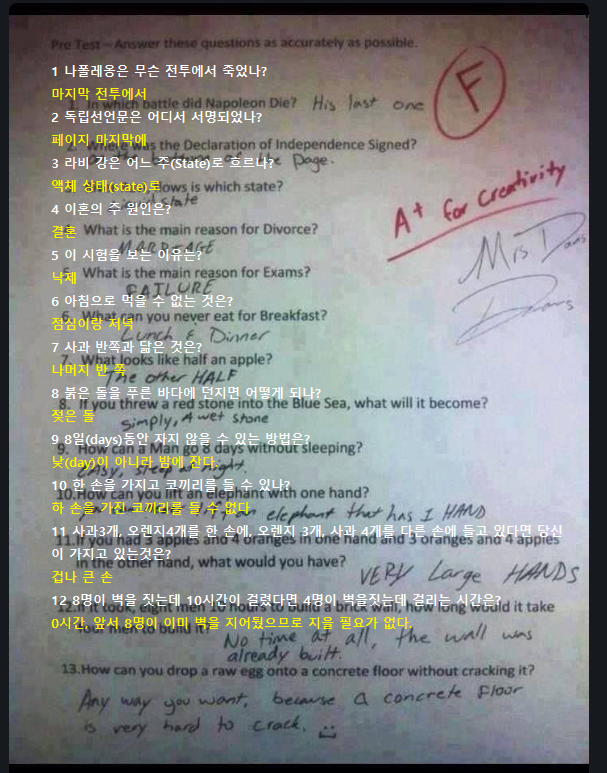 Pre Test – Answer these questions as accurately as possible.
F
1 나폴레옹은 무슨 전투에서 죽었나?
마지막 전투에서
1. In which battle did Napoleon Die? His last one
2 독립선언문은 어디서 서명되었나?
페이지 마지막에
2. Where was the Declaration of Independence Signed?
the page.
3 라비 강은 어느 주(State)로 흐르나?
액체 상태(state)로
flows is which state?
state
A+ for Creativity
4 이혼의 주 원인은?
결혼
What is the main reason for Divorce?
MARREAGE
Mrs Davis
5 이 시험을 보는 이유는?
낙제
5. What is the main reason for Exams?
FAILURE
6 아침으로 먹을 수 없는 것은?
점심이랑 저녁
6. What can you never eat for Breakfast?
Lunch & Dinner
7 사과 반쪽과 닮은 것은?
나머지 반 쪽
7. What looks like half an apple?
The other HALF
8 붉은 돌을 푸른 바다에 던지면 어떻게 되나?
젖은 돌
8. If you threw a red stone into the Blue Sea, what will it become?
simply, A wet stone
9 8일(days)동안 자지 않을 수 있는 방법은?
낮(day)이 아니라 밤에 잔다.
9. How can a Man go 8 days without sleeping?
EASY, sleep at night.
10 한 손을 가지고 코끼리를 들 수 있나?
하 손을 가진 코끼리를 들 수 없다
10.How can you lift an elephant with one hand?
an elephant that has 1 HAND
11 사과3개, 오렌지4개를 한 손에, 오렌지 3개, 사과 4개를 다른 손에 들고 있다면 당신
이 가지고 있는것은?
겁나 큰 손
11.If you had 3 apples and 4 oranges in one hand and 3 oranges and 4 apples
in the other hand, what would you have?
VERY Large HANDS
12 8명이 벽을 짓는데 10시간이 걸렸다면 4명이 벽을짓는데 걸리는 시간은?
0시간, 앞서 8명이 이미 벽을 지어뒀으므로 지을 필요가 없다.
12.If it took, eight men 10 hours to build a brick wall, how long would it take
four men to build it?
No time at all, the wall was
already built.
13.How can you drop a raw egg onto a concrete floor without cracking it?
Any way you want, because a concrete floor
is very hard to crack.